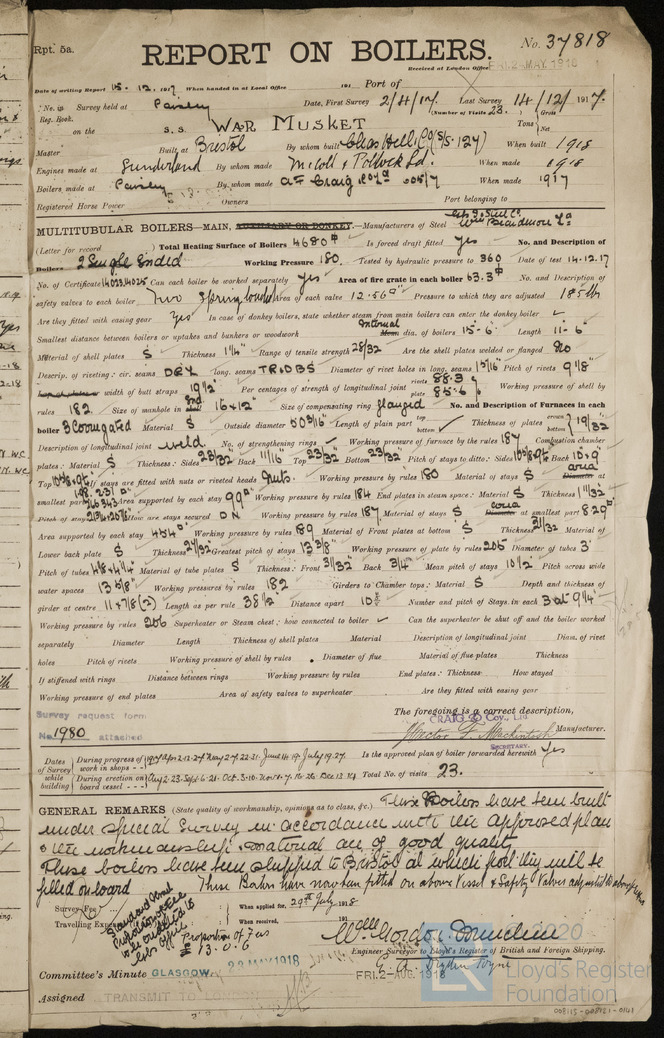 Rpt. 5a.
REPORT ON BOILERS.
No. 37818
Received at London Office FRI. 24 MAY 1918
Date of writing Report 15. 12. 1917 When handed in at Local Office 191 Port of
No. in Survey held at Paisley Date, First Survey 2/4/17 Last Survey 14/12/1917.
Reg. Book. (Number of Visits 23.)
on the S. S. WAR MUSKET Tons Gross Net
Master Built at Bristol By whom built Chas Hill & Co (S/S. 127) When built 1918
Engines made at Sunderland By whom made McColl & Pollock Ld. When made 1918
Boilers made at Paisley By whom made A F Craig & Co Ld When made 1917
Registered Horse Power Owners Port belonging to
MULTITUBULAR BOILERS—MAIN, AUXILIARY OR DONKEY.—Manufacturers of Steel Wm Beardmore Ld
(Letter for record ) Total Heating Surface of Boilers 4680 Is forced draft fitted yes No. and Description of
Boilers 2 Single Ended Working Pressure 180. Tested by hydraulic pressure to 360 Date of test 14.12.17
No. of Certificate 14023.14025 Can each boiler be worked separately yes Area of fire grate in each boiler 63.3 No. and Description of
safety valves to each boiler Two Spring loaded Area of each valve 12.56 Pressure to which they are adjusted 185 lbs
Are they fitted with easing gear yes In case of donkey boilers, state whether steam from main boilers can enter the donkey boiler ✓
Smallest distance between boilers or uptakes and bunkers or woodwork Internal Mean dia. of boilers 15-6" Length 11-6"
Material of shell plates S Thickness 1 1/4" Range of tensile strength 28/32 Are the shell plates welded or flanged No
Descrip. of riveting: cir. seams DRL long. seams TRDBS Diameter of rivet holes in long. seams 1 5/16" Pitch of rivets 9 1/8"
width of butt straps 19 1/2" Per centages of strength of longitudinal joint rivets 88.3 plate 85.6 Working pressure of shell by
rules 182 Size of manhole in End 16 x 12" Size of compensating ring flanged No. and Description of Furnaces in each
boiler 3 Corrugated Material S Outside diameter 50 3/16" Length of plain part top bottom Thickness of plates crown bottom 19/32
Description of longitudinal joint weld. No. of strengthening rings Working pressure of furnace by the rules 187 Combustion chamber
plates: Material S Thickness: Sides 23/32" Back 11/16" Top 23/32" Bottom 23/32" Pitch of stays to ditto: Sides Back
Top If stays are fitted with nuts or riveted heads Nuts. Working pressure by rules 180 Material of stays S area Diameter at
smallest part Area supported by each stay 99 Working pressure by rules 184 End plates in steam space: Material S Thickness 1 11/32
Pitch of stays How are stays secured DN Working pressure by rules 187 Material of stays S area Diameter at smallest part 8.29
Area supported by each stay 454 Working pressure by rules 189 Material of Front plates at bottom S Thickness 31/32 Material of
Lower back plate S Thickness 27/32" Greatest pitch of stays 13 3/8" Working pressure of plate by rules 205 Diameter of tubes 3"
Pitch of tubes Material of tube plates S Thickness: Front 31/32" Back 3/4" Mean pitch of stays 10 1/2 Pitch across wide
water spaces 13 5/8" Working pressures by rules 182 Girders to Chamber tops: Material S Depth and thickness of
girder at centre 11 x 7/8 (2) Length as per rule 38 1/2" Distance apart 10 Number and pitch of Stays in each 3 at 9 1/4"
Working pressure by rules 206 Superheater or Steam chest; how connected to boiler ✓ Can the superheater be shut off and the boiler worked
separately Diameter Length Thickness of shell plates Material Description of longitudinal joint Diam. of rivet
holes Pitch of rivets Working pressure of shell by rules Diameter of flue Material of flue plates Thickness
If stiffened with rings Distance between rings Working pressure by rules End plates: Thickness How stayed
Working pressure of end plates Area of safety valves to superheater Are they fitted with easing gear
Survey request form
No. 1980 attached
The foregoing is a correct description,
CRAIG & Coy., Ltd
Hector F. Mackintosh Manufacturer.
SECRETARY.
Dates of Survey while building
During progress of work in shops - -
Is the approved plan of boiler forwarded herewith Yes
During erection on board vessel - - -
Total No. of visits 23.
GENERAL REMARKS (State quality of workmanship, opinions as to class, &c.) These Boilers have been built
under special Survey in accordance with the approved plan
& the workmanship & material are of good quality.
These boilers have been shipped to Bristol at which port they will be
fitted on board. These Boilers have now been fitted on above Vessel & Safety Valves adjusted
Survey Fee When applied for, 29th July 1918
Travelling Expenses When received, 191
Proportion of Fees
13. 0. 6
Wm Gordon
Engineer Surveyor to Lloyd's Register of British and Foreign Shipping.
Committee's Minute GLASGOW 23 MAY 1918
FRI. 2-AUG. 1918
Assigned TRANSMIT TO LONDON
© 2020
Lloyd's Register
Foundation
008115-008121-0141